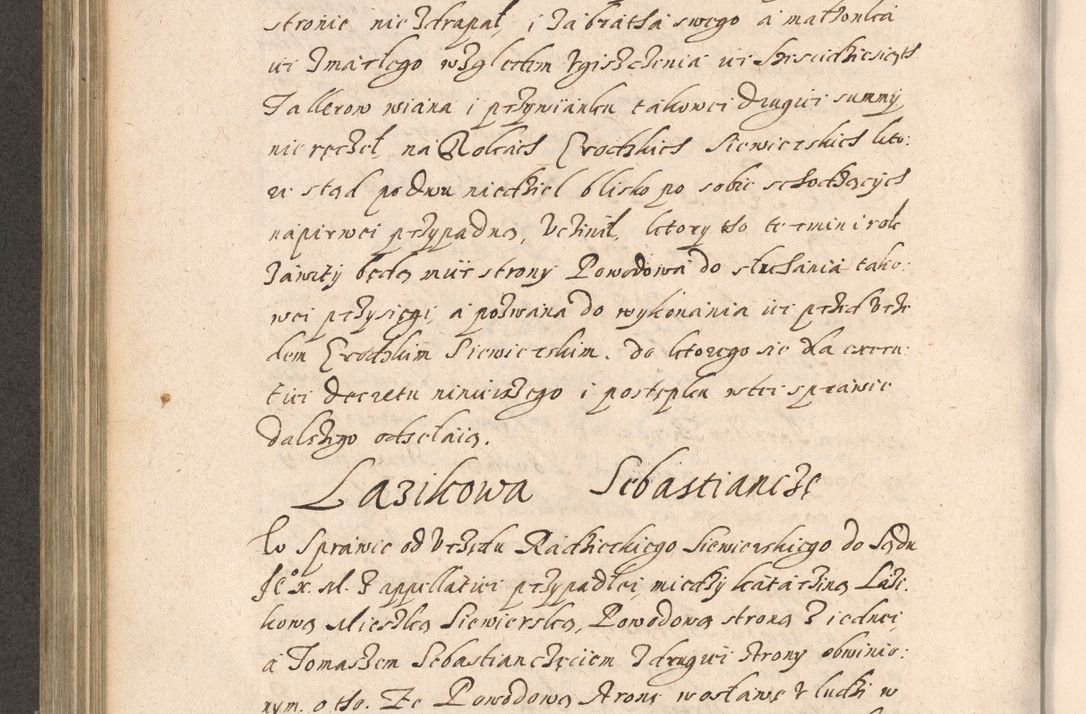 stronie nie zdrapał, i za bratha swego a małżonka
iei zmarłego względem ziszczenia iei sześcidziesiąth
Tallerow wiana i przywianku takowei drugiei summy
nie ręczeł, na Rokach Grodzkich Siewierskich kto:
re stąd po dwu niedziel blisko po sobie schodzących
napirwei przypadną, Uczinił, ktory tho termin i rok
zawity będą mieć strony Powodowa do słuchania tako:
wei przysięgi, a pozwana do wykonania iei przed Urzę
dem Grodzkim Siewierskim. do ktorego się dla exeku:
tiei decretu ninieiszego i postępku w tei sprawie
dalszego odsełaią.
Lazikowa Sebastianczę
W Sprawie od Urzędu Radzieckiego Siewierskiego do Sądu
Je° X. M. z appellatiei przypadłei, miedzy Katarzińą Lazi:
kową Mieszką Siewierską, Powodową stroną z iednei,
a Tomaszem Sebastianczęciem z drugiei strony obwinio:
nym. o tho. Że Powodową stronę w osławę u ludzi w